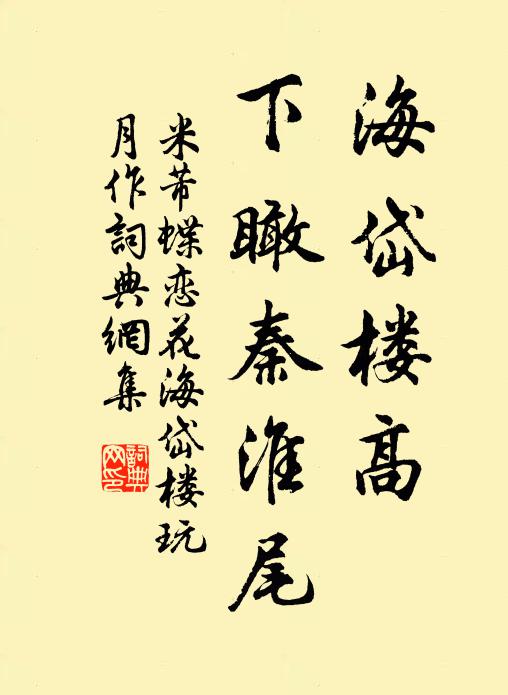 海岱楼高
下瞰秦淮尾
米芾蝶恋花海岱楼玩
月作詞典網集
詞典網印